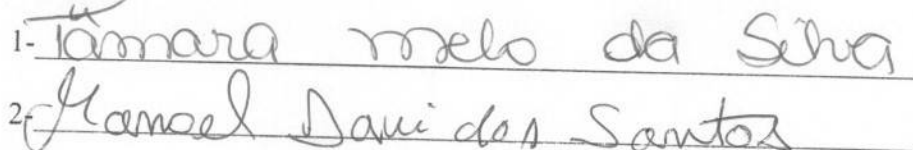 1- Tâmara melo da Silva
2- Manoel Davi dos Santos